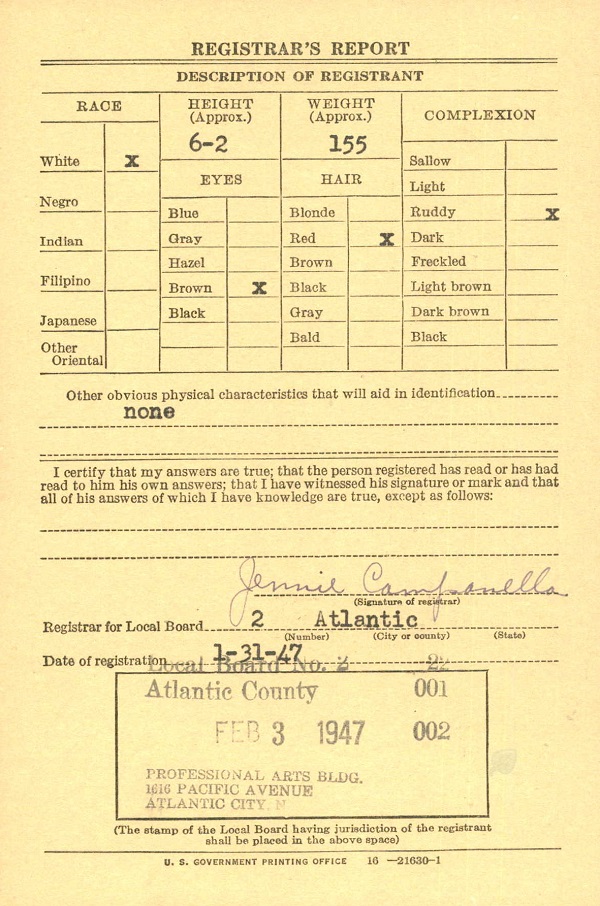 REGISTRAR'S REPORT
DESCRIPTION OF REGISTRANT
RACE
HEIGHT
(Approx.)
WEIGHT
(Approx.)
COMPLEXION
6-2
155
White X
Negro
Indian
Filipino
Japanese
Other
Oriental
EYES
Blue
Gray
Hazel
Brown X
Black
HAIR
Blonde
Red X
Brown
Black
Gray
Bald
Sallow
Light
Ruddy X
Dark
Freckled
Light brown
Dark brown
Black
Other obvious physical characteristics that will aid in identification
none
I certify that my answers are true; that the person registered has read or has had
read to him his own answers; that I have witnessed his signature or mark and that
all of his answers of which I have knowledge are true, except as follows:
Jennie Campanella
(Signature of registrar)
Registrar for Local Board 2 Atlantic
(Number) (City or county) (State)
Date of registration 1-31-47
Local Board No. 2 22
Atlantic County 001
FEB 3 1947 002
PROFESSIONAL ARTS BLDG.
1616 PACIFIC AVENUE
ATLANTIC CITY N
(The stamp of the Local Board having jurisdiction of the registrant
shall be placed in the above space)
U. S. GOVERNMENT PRINTING OFFICE 16—21630-1